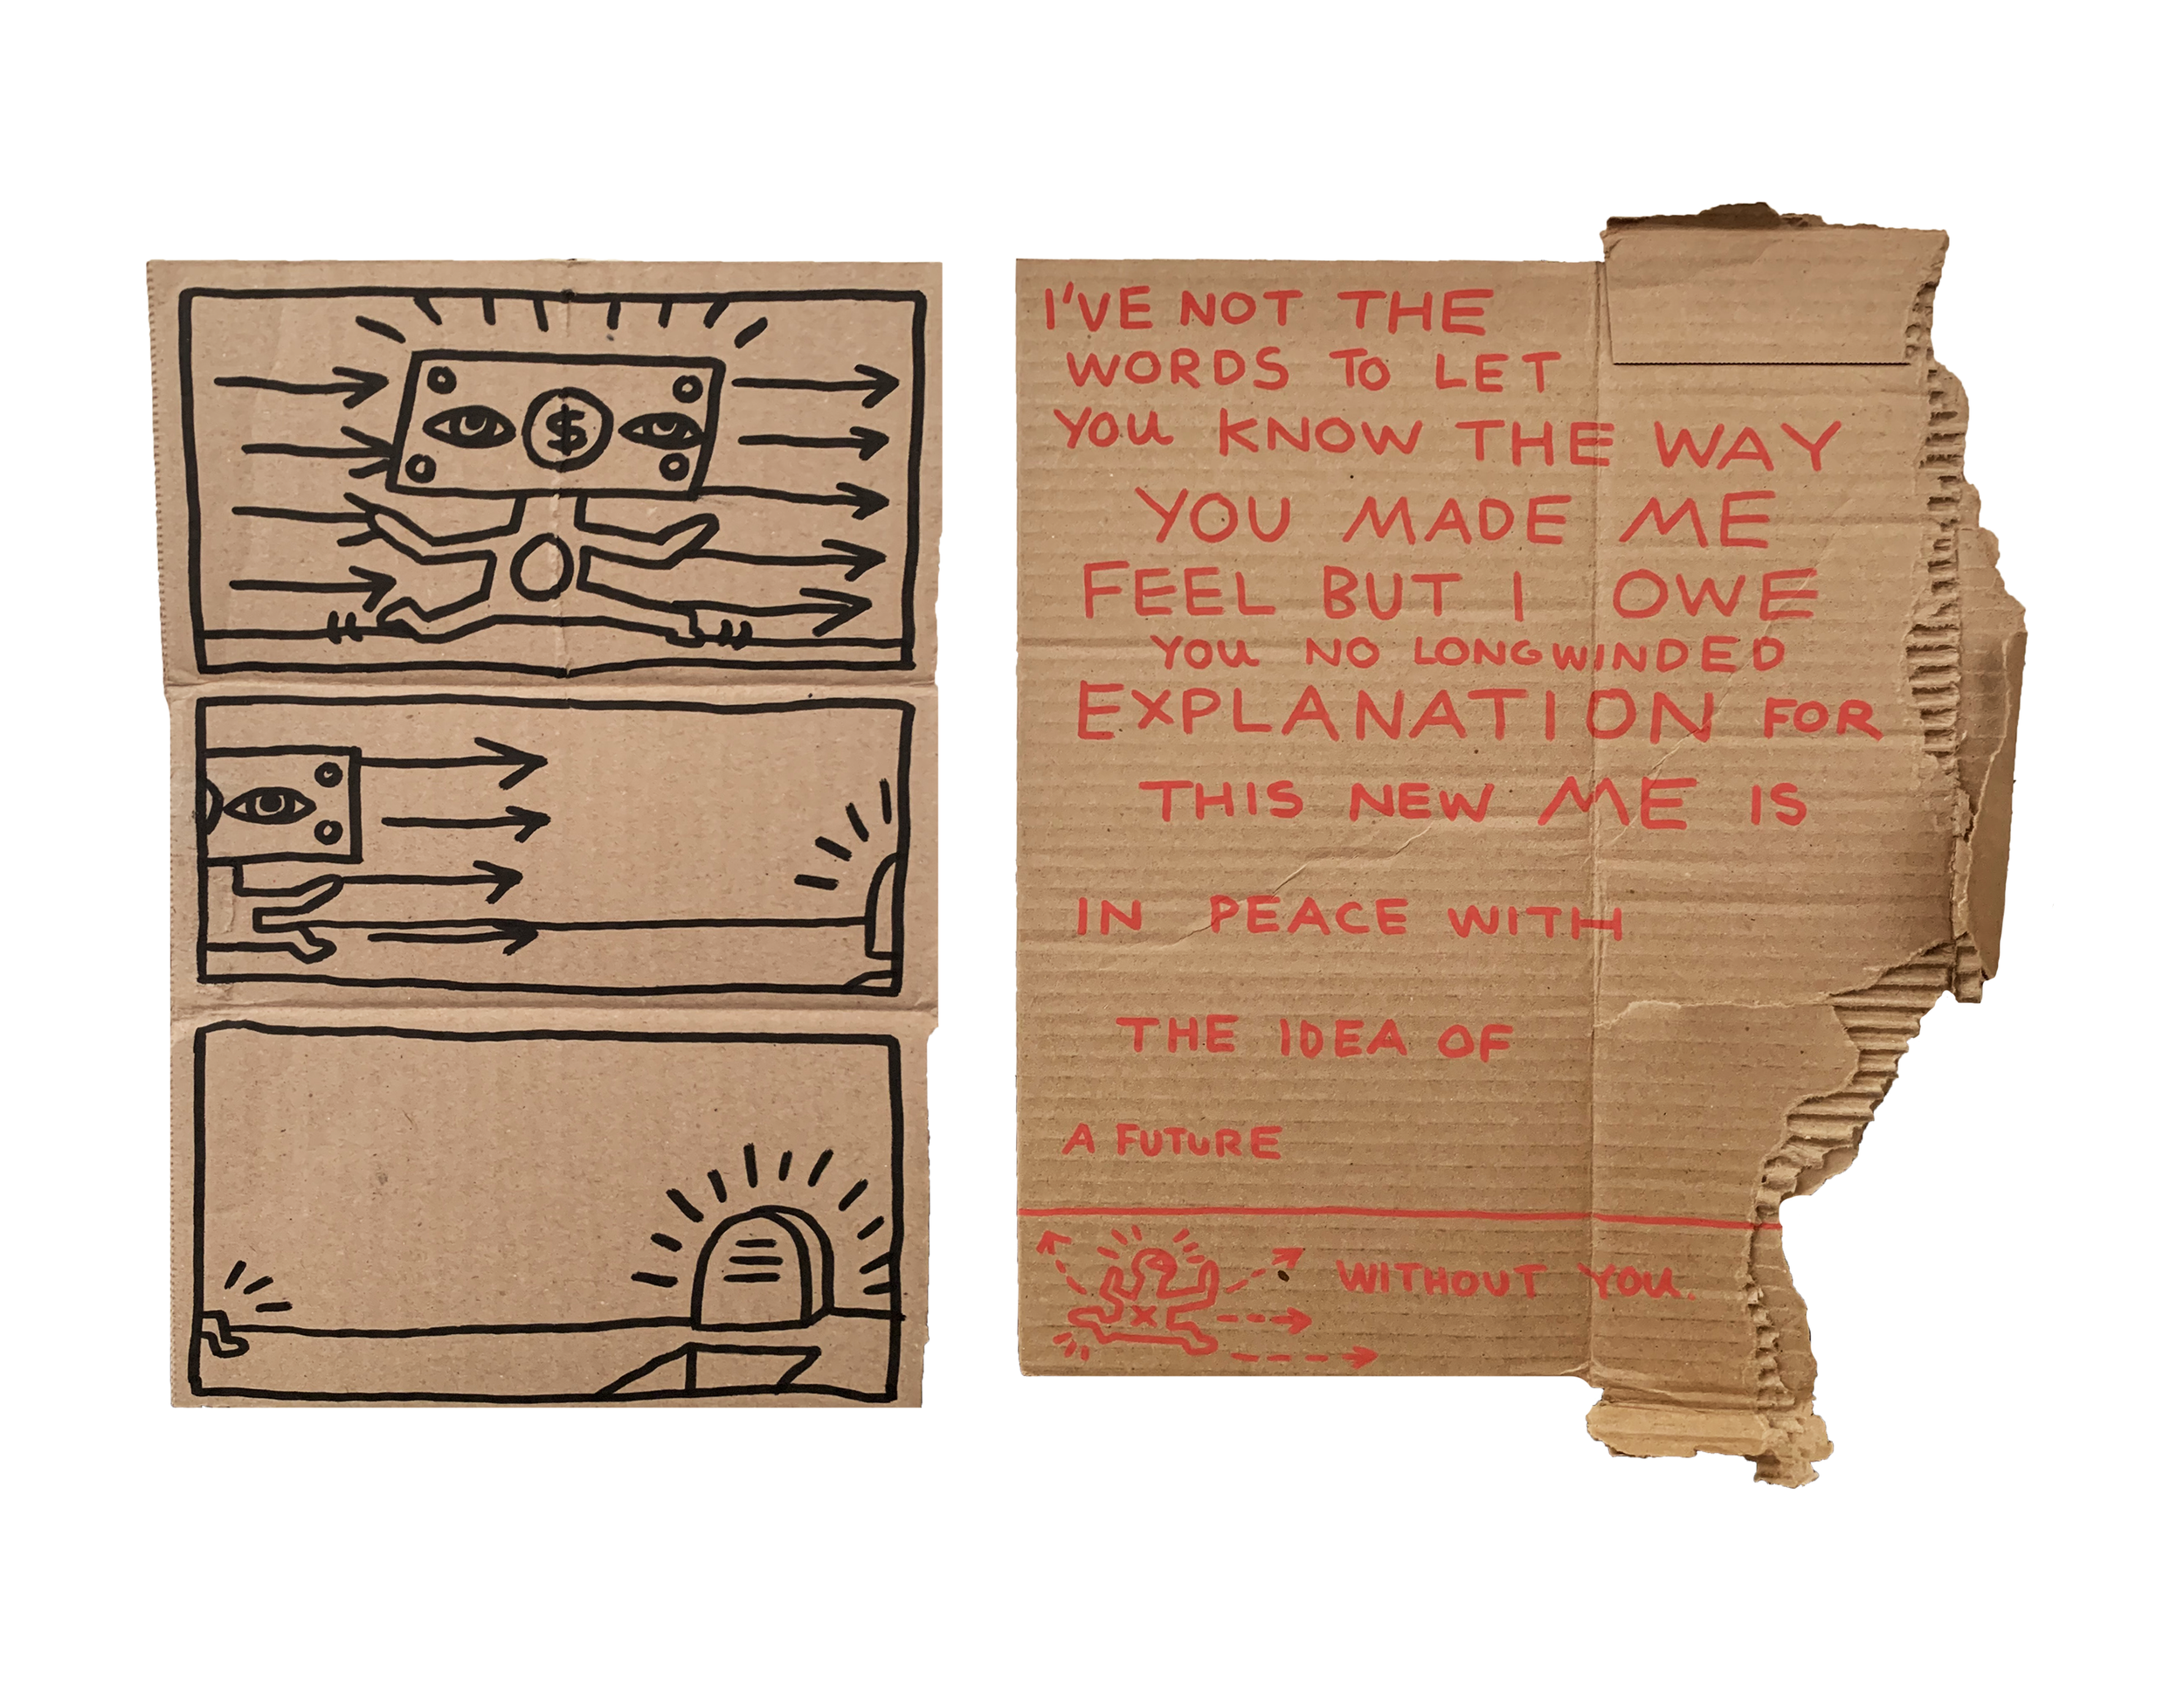 $
I'VE NOT THE
WORDS TO LET
YOU KNOW THE WAY
YOU MADE ME
FEEL BUT I OWE
YOU NO LONGWINDED
EXPLANATION FOR
THIS NEW ME IS
IN PEACE WITH
THE IDEA OF
A FUTURE
WITHOUT YOU.